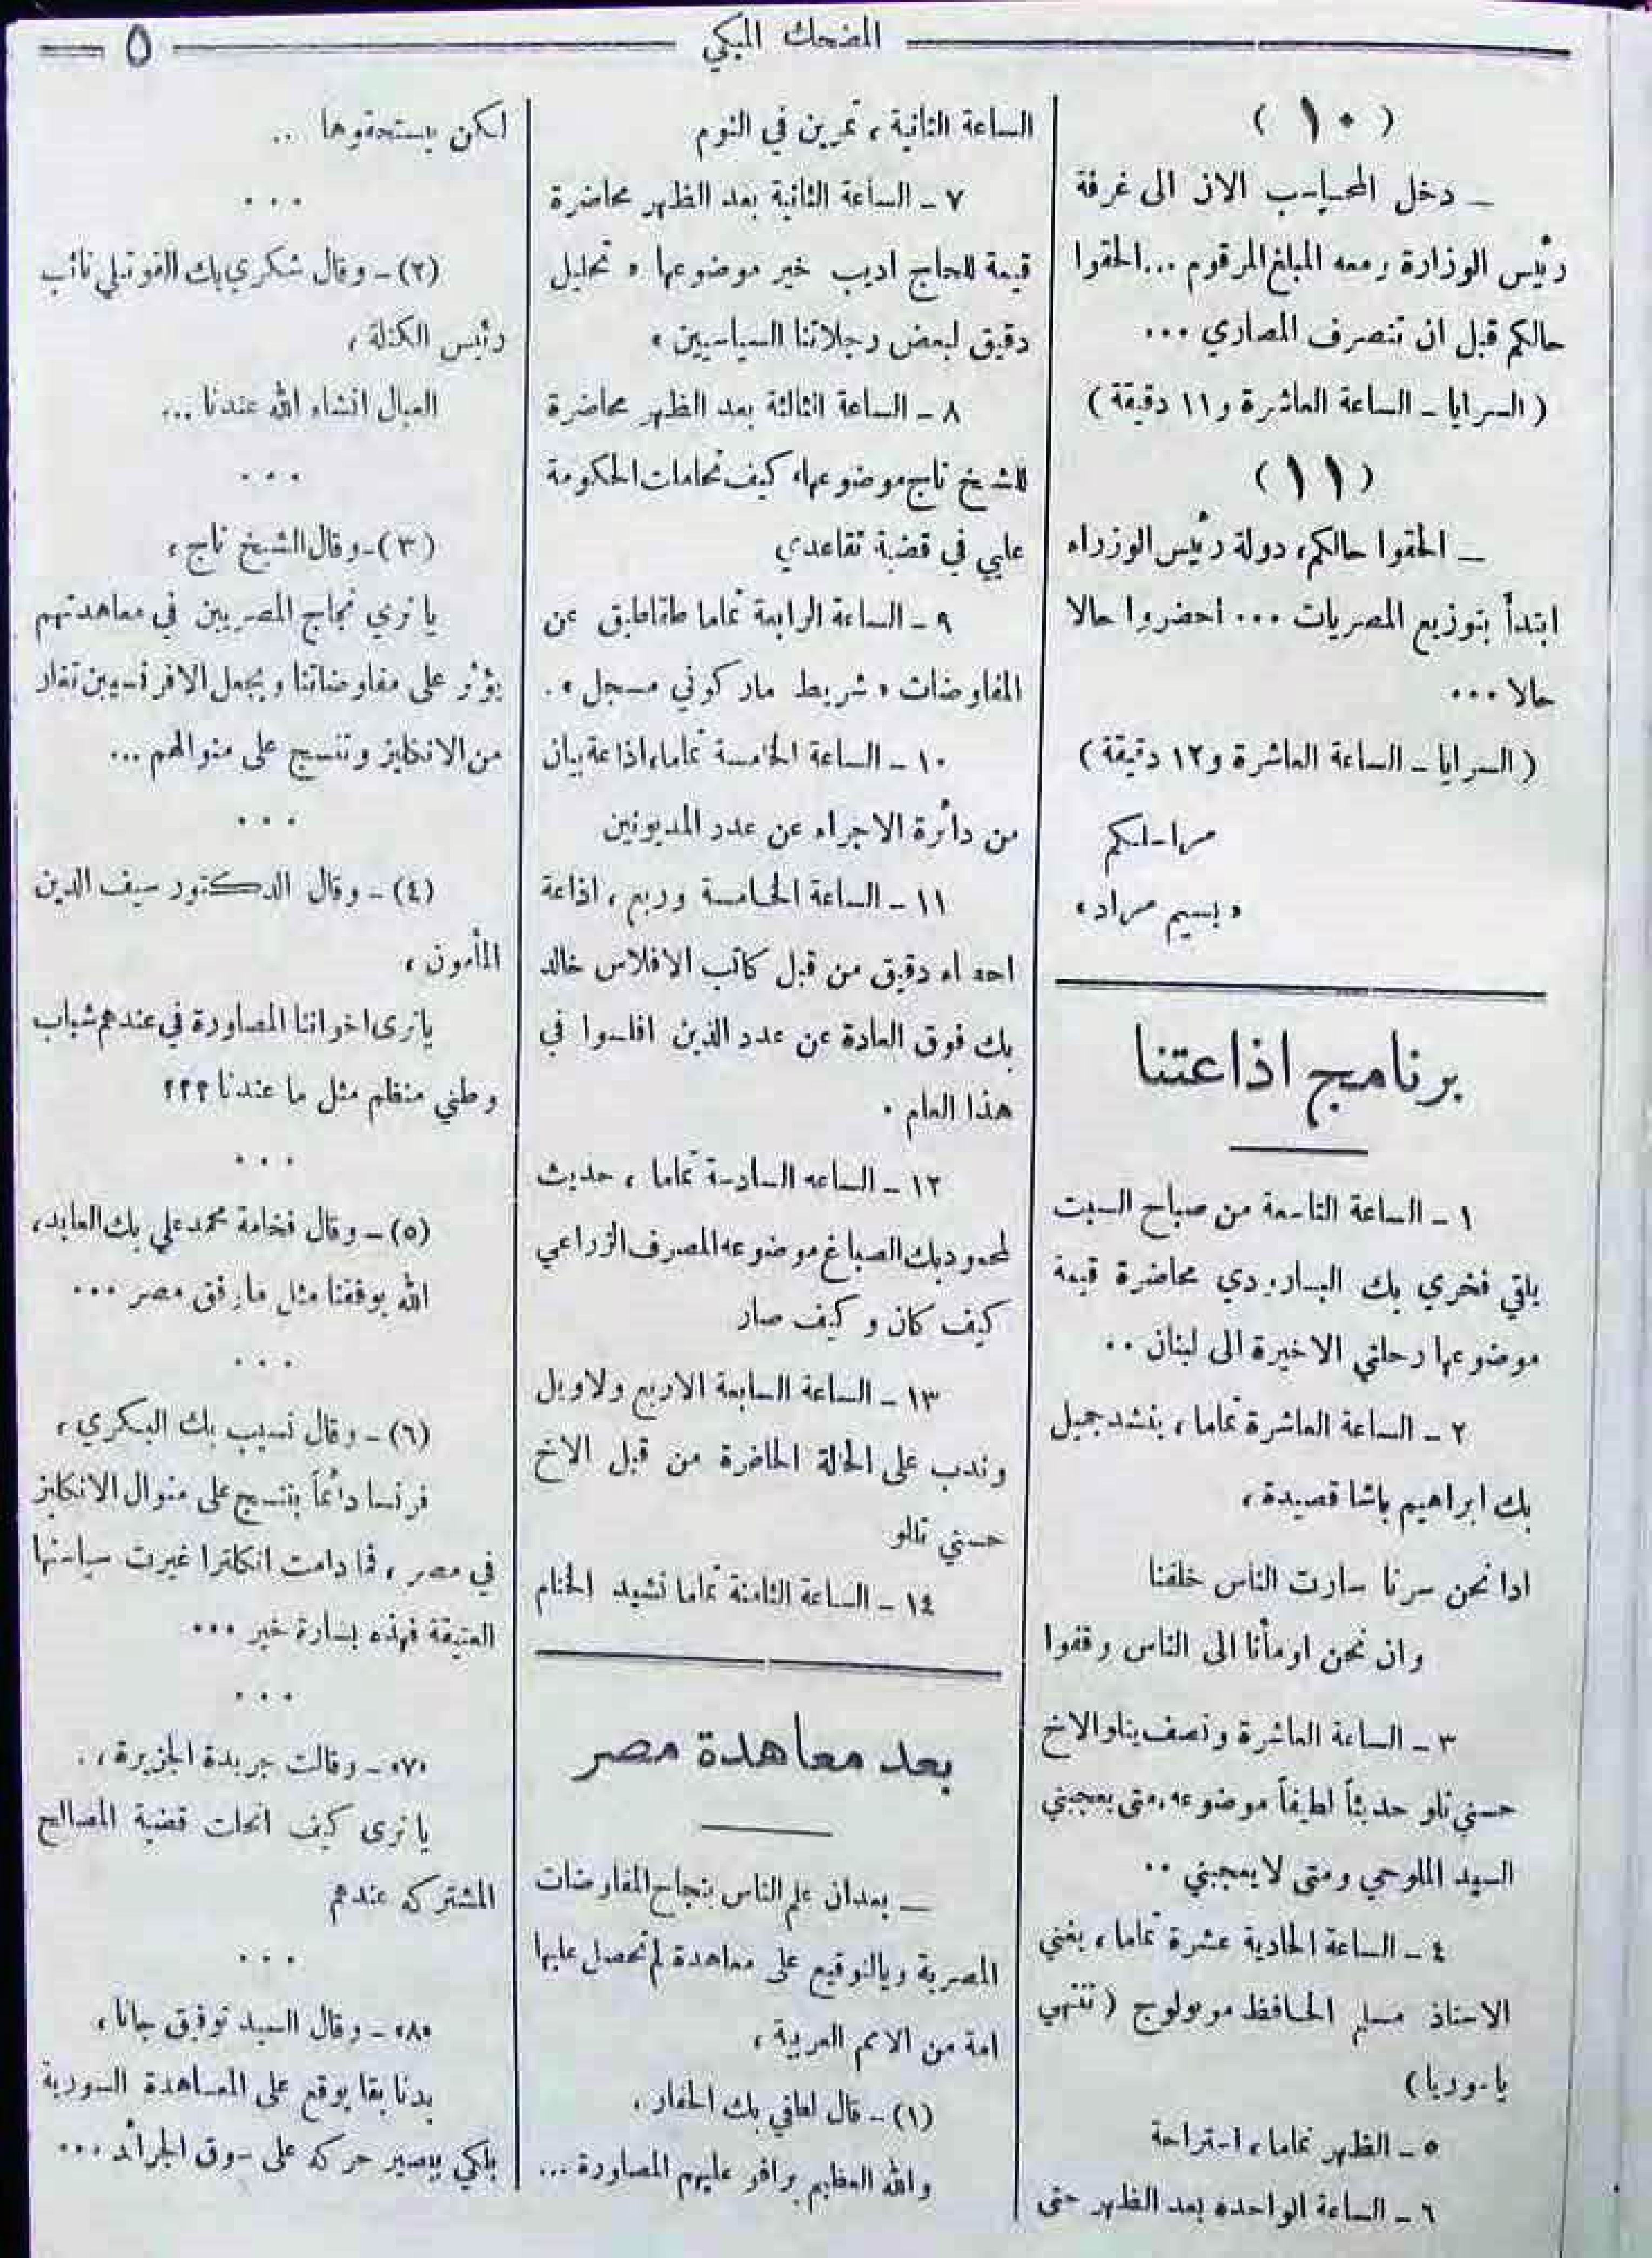 المضحك المبكي
٥
(١٠)
ـ دخل المحاسب الان الى غرفة
رئيس الوزارة ومعه المبلغ المرقوم ...الحقوا
حالكم قبل ان تنصرف المصاري ...
(السرايا ـ الساعة العاشرة و١١ دقيقة)
(١١)
ـ الحقوا حالكم، دولة رئيس الوزراء
ابتدأ بتوزيع المصريات ... احضروا حالا
حالا ...
(السرايا ـ الساعة العاشرة و١٢ دقيقة)
مراسلكم
«بسيم مراد»
برنامج اذاعتنا
١ ـ الساعة التاسعة من صباح السبت
يلقي فخري بك البارودي محاضرة قيمة
موضوعها رحلتي الاخيرة الى لبنان ..
٢ ـ الساعة العاشرة تماما، ينشد جميل
بك ابراهيم باشا قصيدة،
اذا نحن سرنا سارت الناس خلفنا
وان نحن اومأنا الى الناس وقفوا
٣ ـ الساعة العاشرة ونصف يتلو الاخ
حسني تللو حديثاً لطيفاً موضوعه، متى يعجبني
السيد الملوحي ومتى لا يعجبني ..
٤ ـ الساعة الحادية عشرة تماما، يغني
الاستاذ مسلم الحافظ مونولوج (تنتهي
يا سوريا)
٥ ـ الظهر تماما، استراحة
٦ ـ الساعة الواحده بعد الظهر حتى
الساعة الثانية، تمرين في النوم
٧ ـ الساعة الثانية بعد الظهر محاضرة
قيمة للحاج اديب خير موضوعها «تحليل
دقيق لبعض رجلاتنا السياسيين»
٨ ـ الساعة الثالثة بعد الظهر محاضرة
للشيخ تاج موضوعها، كيف تحاملت الحكومة
علي في قضية تقاعدي
٩ ـ الساعة الرابعة تماما طقاطيق عن
المفاوضات «شريط ماركوني مسجل».
١٠ ـ الساعة الخامسة تماما، اذاعة بيان
من دائرة الاجراء عن عدد المديونين
١١ ـ الساعة الخامسة وربع، اذاعة
احصاء دقيق من قبل كاتب الافلاس خالد
بك فوق العادة عن عدد الذين افلسوا في
هذا العام .
١٢ ـ الساعه السادسة تماما، حديث
لمحمود بك الصباغ موضوعه المصرف الزراعي
كيف كان وكيف صار
١٣ ـ الساعة السابعة الاربع ولاويل
وندب على الحالة الحاضرة من قبل الاخ
حسني تللو
١٤ ـ الساعة الثامنة تماما نشيد الختام
بعد معاهدة مصر
ـ بعد ان علم الناس بنجاح المفاوضات
المصرية وبالتوقيع على معاهدة لم تحصل عليها
امة من الامم العربية،
(١) ـ قال لطفي بك الحفار،
والله العظيم برافو عليهم المصاورة ...
لكن بستحقوها ..
...
(٢) ـ وقال شكري بك القوتلي نائب
رئيس الكتلة،
العبال انشاء الله عندنا ...
...
(٣) ـ وقال الشيخ تاج،
يا ترى نجاح المصريين في معاهدتهم
يؤثر على مفاوضاتنا ويجعل الافرنسيين تغار
من الانكليز وتنسج على منوالهم ...
...
(٤) ـ وقال الدكتور سيف الدين
المأمون،
يا ترى اخواننا المصاورة في عندهم شباب
وطني منظم مثل ما عندنا ؟؟؟
...
(٥) ـ وقال فخامة محمد علي بك العابد،
الله يوفقنا مثل ما وفق مصر ...
...
(٦) ـ وقال نسيب بك البكري،
فرنسا دائماً بتنسج على منوال الانكليز
في مصر، فما دامت انكلترا غيرت سياستها
العتيقة فهذه بشارة خير ...
...
«٧» ـ وقالت جريدة الجزيرة،.
يا ترى كيف انحلت قضية المصالح
المشتركه عندهم
...
«٨» ـ وقال السيد توفيق جانا،
بدنا بقا يوقع على المعاهدة السورية
بلكي بيصير حركه على سوق الجرائد ...